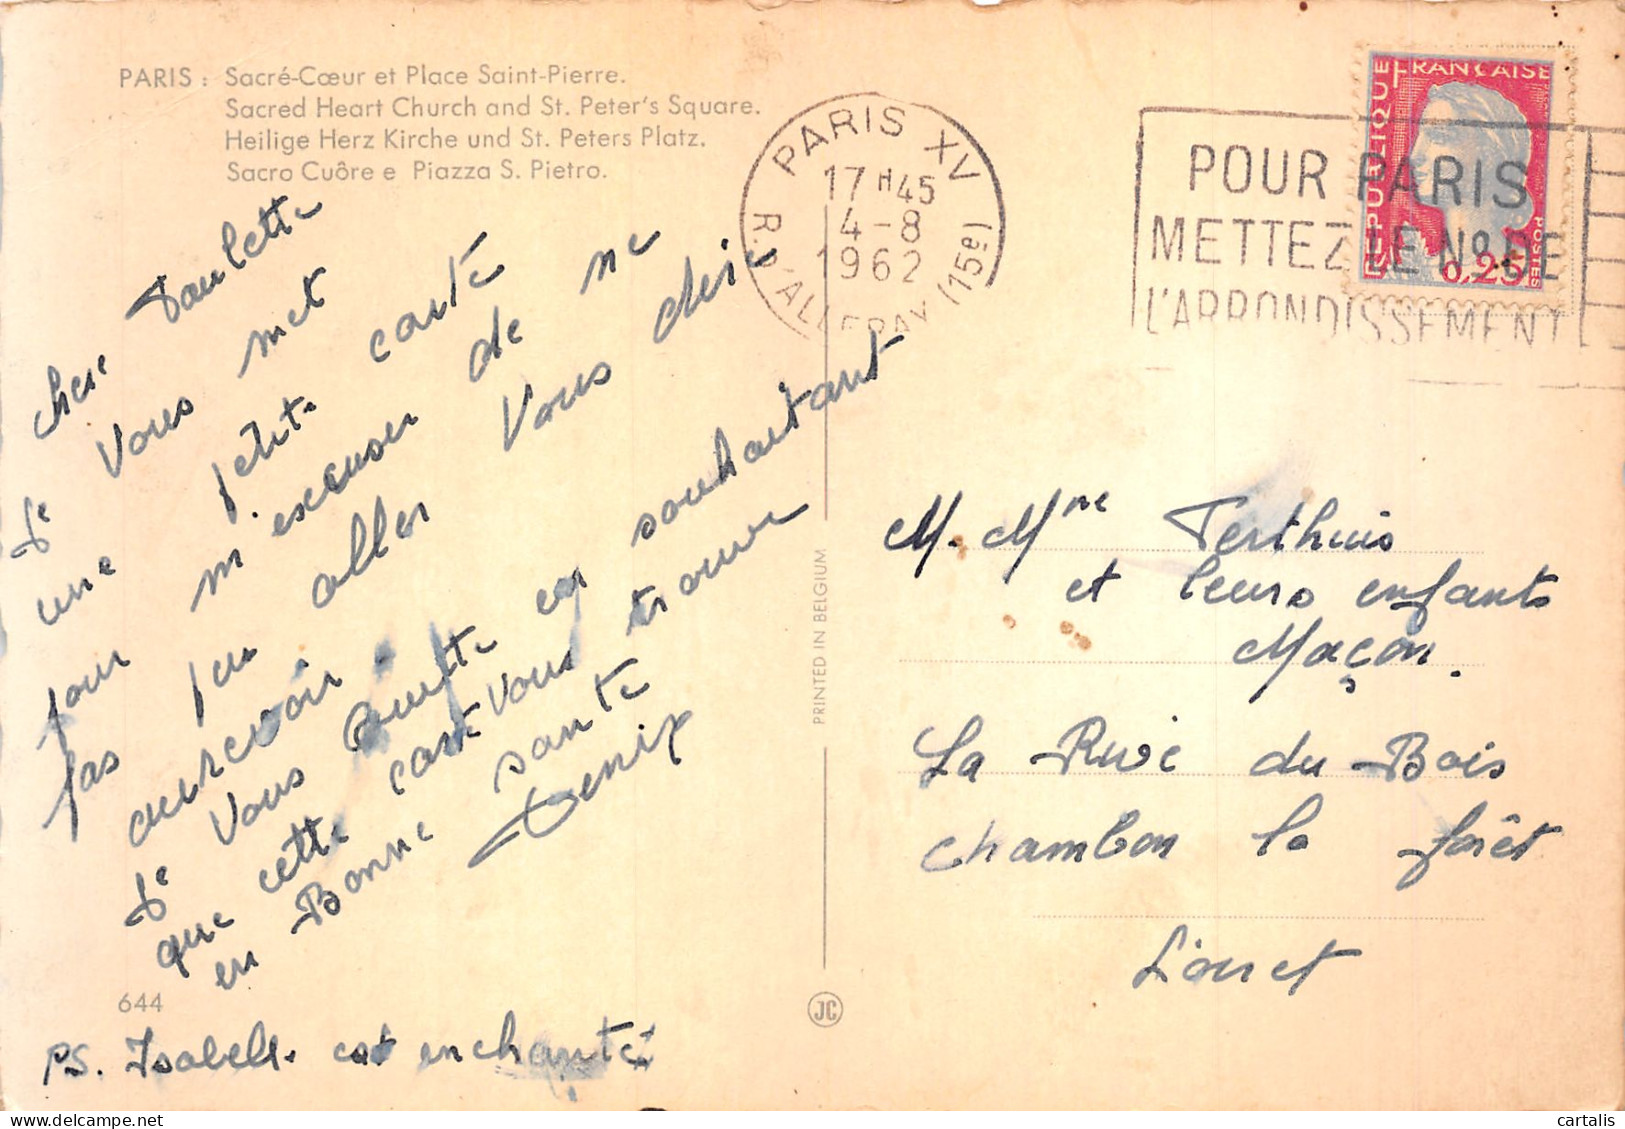 PARIS : Sacré-Cœur et Place Saint-Pierre.
Sacred Heart Church and St. Peter's Square.
Heilige Herz Kirche und St. Peters Platz.
Sacro Cuôre e Piazza S. Pietro.
PARIS XV
17 H 45
4-8
1962
R. D'ALLERAY (15e)
POUR PARIS
METTEZ LE No DE
L'ARRONDISSEMENT
REPUBLIQUE FRANÇAISE
POSTES
0,25
Chère Paulette
Je vous met
une petite carte
pour m'excuser de ne
pas pu aller vous dire
aurevoir.
Je vous en souhaitant
que cette carte vous trouve
en Bonne santé
Denise
PS. Isabelle est enchanté
644
PRINTED IN BELGIUM
JC
M. Mme Perthuis
et leurs enfants
Maçon.
La Rive du Bois
chambon la forêt
Loiret
cartalis